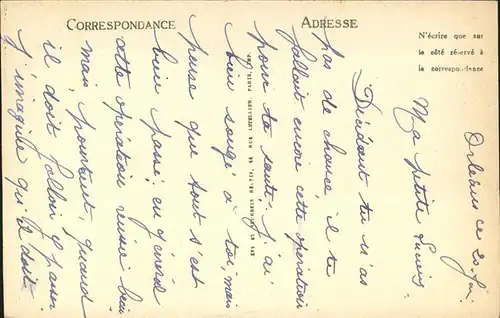 CORRESPONDANCE
ADRESSE
N'écrire que sur
le côté réservé à
la correspondance
Orléans ce 20
Ma petite
Décidément tu n'as
pas de chance, il te
fallait encore cette opération
pour ta santé. J'ai
bien songé à toi, mais
pense que tout s'est
bien passé, en général
cette opération réussie bien
mais, pourtant, quand
il doit falloir y passer
j'imagine qu'il doit